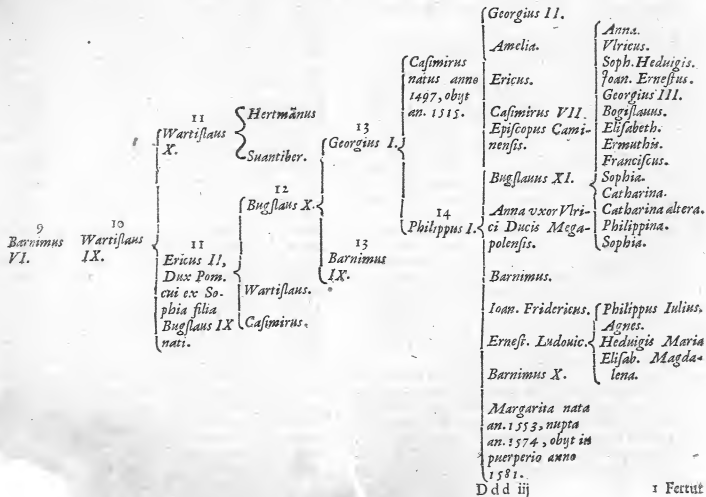 9
Barnimus
VI.
10
Wartiſlaus
IX.
11
Wartiſlaus
X.
11
Ericus II,
Dux Pom.
cui ex So-
phia filia
Bugſlaus IX
nati.
Hertmãnus
Suantiber.
12
Bugſlaus X.
Wartiſlaus.
Caſimirus.
13
Georgius I.
13
Barnimus
IX.
Caſimirus
natus anno
1497, obijt
an. 1515.
14
Philippus I.
Georgius II.
Amelia.
Ericus.
Caſimirus VII.
Epiſcopus Cami-
nenſis.
Bugſlauus XI.
Anna vxor Vlri-
ci Ducis Mega-
polenſis.
Barnimus.
Ioan. Fridericus.
Erneſt. Ludouic.
Barnimus X.
Margarita nata
an. 1553, nupta
an. 1574, obijt in
puerperio anno
1581.
Anna.
Vlricus.
Soph. Heduigis.
Joan. Erneſtus.
Georgius III.
Bogiſlauus.
Eliſabeth.
Ermuthis.
Franciſcus.
Sophia.
Catharina.
Catharina altera.
Philippina.
Sophia.
Philippus Iulius.
Agnes.
Heduigis Maria
Eliſab. Magda-
lena.
D d d iij
1 Fertut